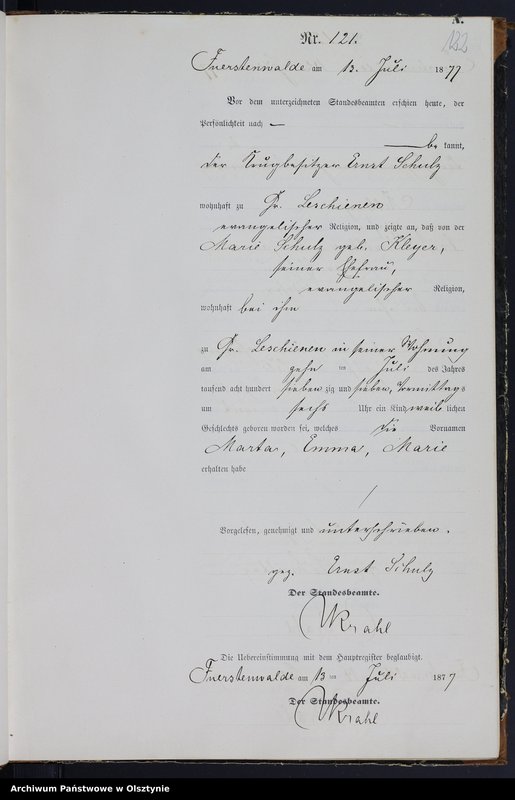 A.
132
Nr. 121.
Fuerstenwalde am 13. Juli 1877
Vor dem unterzeichneten Standesbeamten erschien heute, der
Persönlichkeit nach —
be kannt,
der Krugbesitzer Ernst Schulz
wohnhaft zu Gr. Leschienen
evangelischer Religion, und zeigte an, daß von der
Marie Schulz geb. Kleyer,
seiner Ehefrau,
evangelischer Religion,
wohnhaft bei ihm
zu Gr. Leschienen in seiner Wohnung
am zehn ten Juli des Jahres
tausend acht hundert sieben zig und sieben, Vormittags
um sechs Uhr ein Kind weib lichen
Geschlechts geboren worden sei, welches die Vornamen
Marta, Emma, Marie
erhalten habe
/
Vorgelesen, genehmigt und unterschrieben.
gez. Ernst Schulz
Der Standesbeamte.
Krahl
Die Uebereinstimmung mit dem Hauptregister beglaubigt.
Fuerstenwalde am 13 ten Juli 1877
Der Standesbeamte.
Krahl
Archiwum Państwowe w Olsztynie